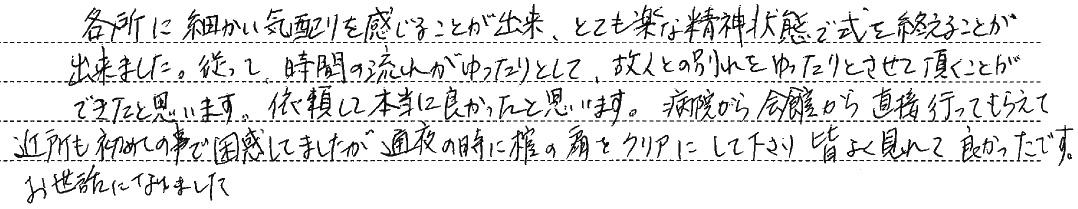 各所に細かい気配りを感じることが出来、とても楽な精神状態で式を終えることが
出来ました。従って、時間の流れがゆったりとして、故人との別れをゆったりとさせて頂くことが
できたと思います。依頼して本当に良かったと思います。病院から会館から直接行ってもらえて
近所も初めての事で困惑してましたが通夜の時に棺の扉をクリアにして下さり皆よく見れて良かったです。
お世話になりました